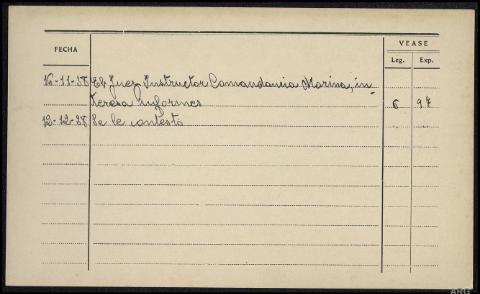 VEASE
FECHA
Leg. Exp.
16-11-38 El Juez Instructor Comandancia Marina, in-
teresa informes 6 97
12-12-38 Se le contestó
ARG